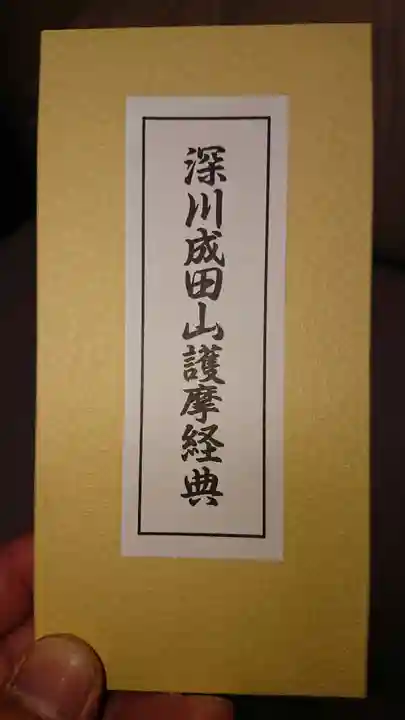 深川成田山護摩経典